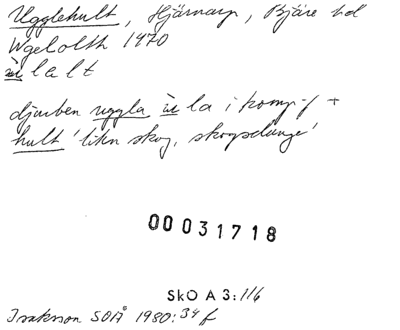 Ugglehult, Hjärnarp, Bjäre hd
W gelolth 1470
ùlalt
djurben uggla, ùla i komp-f +
hult 'liten skog, skogsdunge'
00031718
SkO A 3: 116
Isaksson SOÅ 1980: 34 f